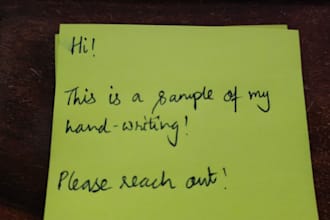 Hi!
This is a sample of my
hand-writing!
Please reach out!